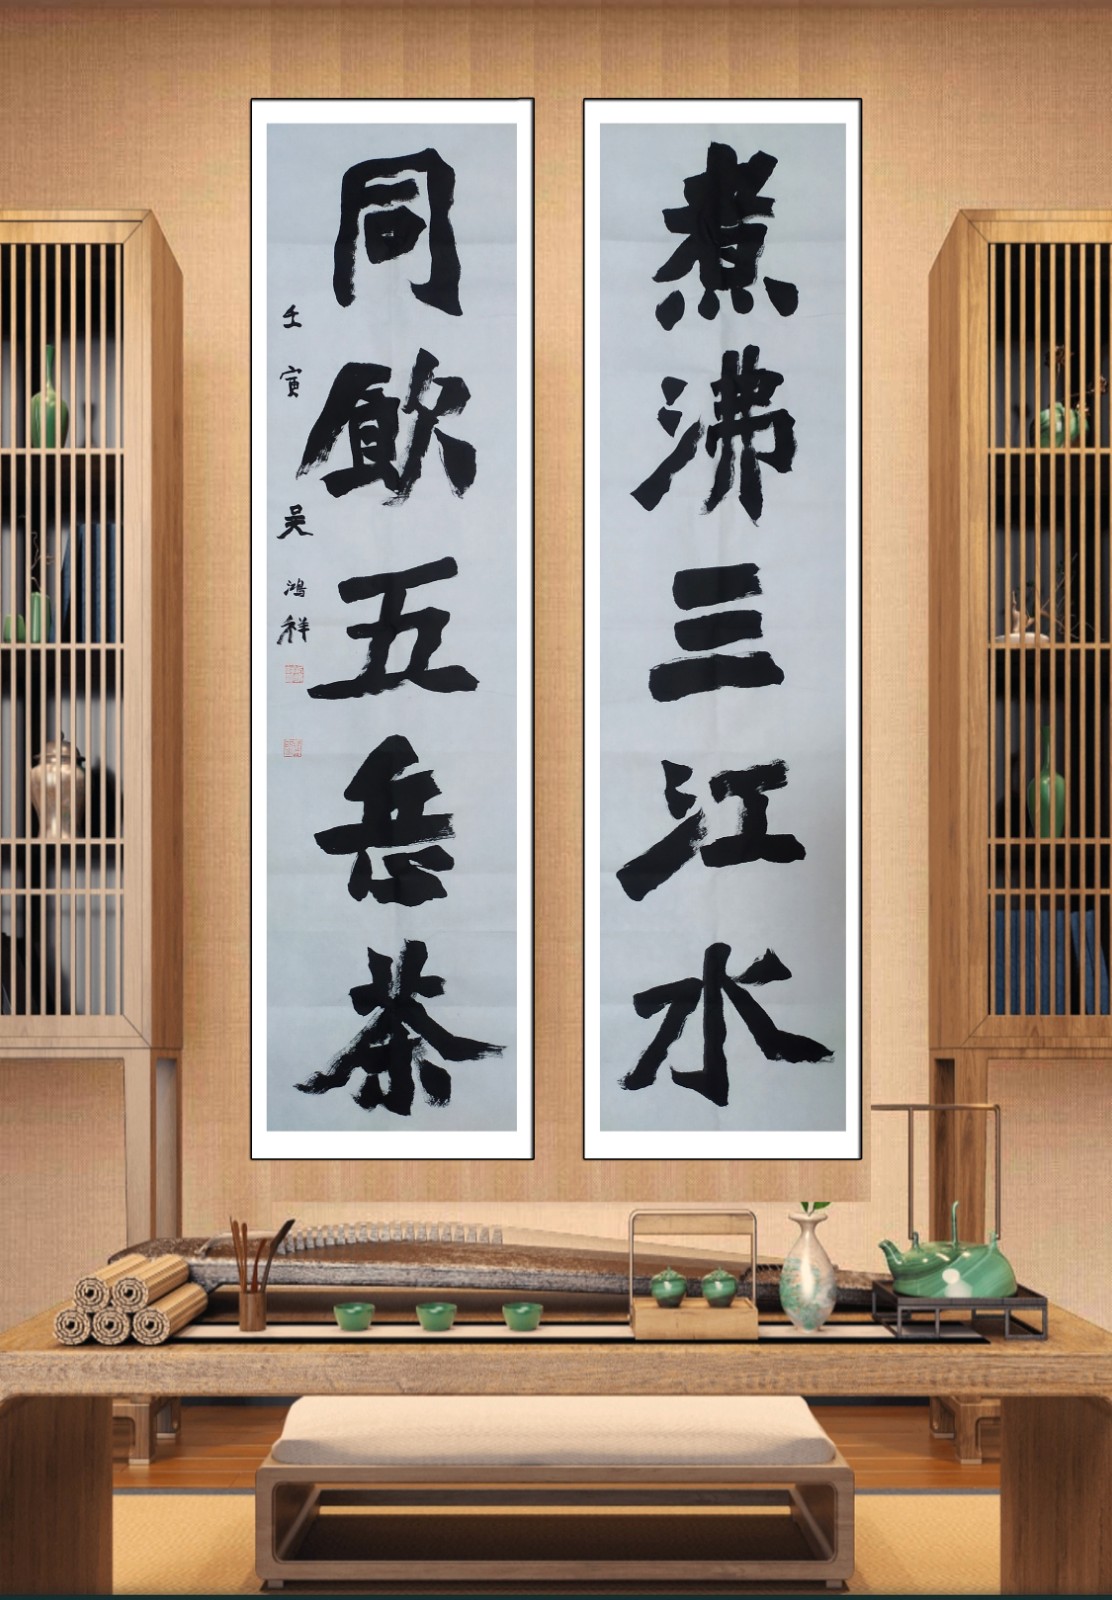 煮沸三江水
同飲五岳茶
壬寅 吴鴻祥